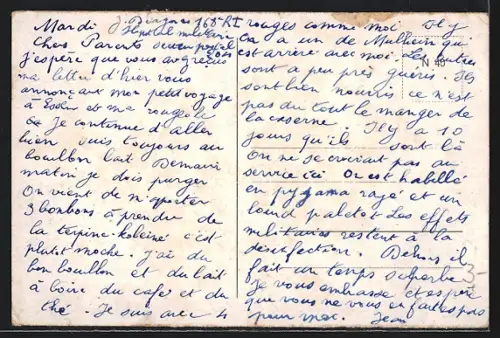 Mardi J. 168 RI
Hopital militaire
Chers Parents secteur postal
j'espère que vous avez reçus
ma lettre d'hier vous
annonçant mon petit voyage
à Essen et ma rougeole
Je continue d'aller
bien suis toujours au
bouillon lait Demain
matin je dois purger
On vient de m'apporter
3 bonbons à prendre de
la terpine-kodeine c'est
plutôt moche. J'ai du
bon bouillon et du lait
à boire du café et du
thé. Je suis avec 4
rouges comme moi Il y
en a un de Mulheim qui
est arrivé avec moi. Les autres
sont a peu près guéris. Ils
sont bien nourris ce n'est
pas du tout le manger de
la caserne Il y a 10
jours qu'ils sont là
On ne se croirait pas au
service ici On est habillé
en pygama rayé et un
lourd paletot Les effets
militaires restent à la
desinfection. Dehors il
fait un temps superbe
Je vous embrasse et espère
que vous ne vous en faites pas
pour moi. Jean
N 49
5-